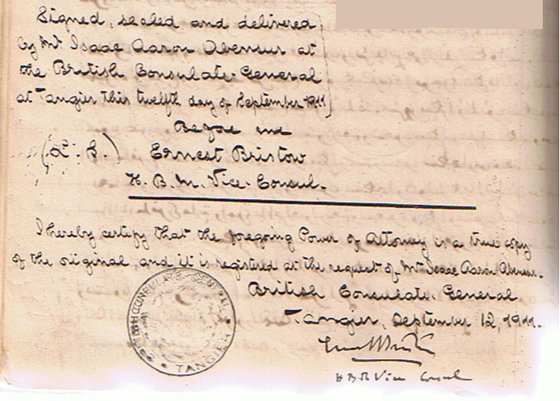 Signed, sealed and delivered
by Mr Isaac Aaron Abensur at
the British Consulate General
at Tangier this twelfth day of September 1911
Before me
(L. S.) Ernest Bristow
H. B. M. Vice-Consul.
I hereby certify that the foregoing Power of Attorney is a true copy
of the original, and it is registered at the request of Mr Isaac Aaron Abensur.
British Consulate General
Tangier, September 12, 1911.
H B M Vice Consul
BRITISH CONSULATE GENERAL
TANGIER